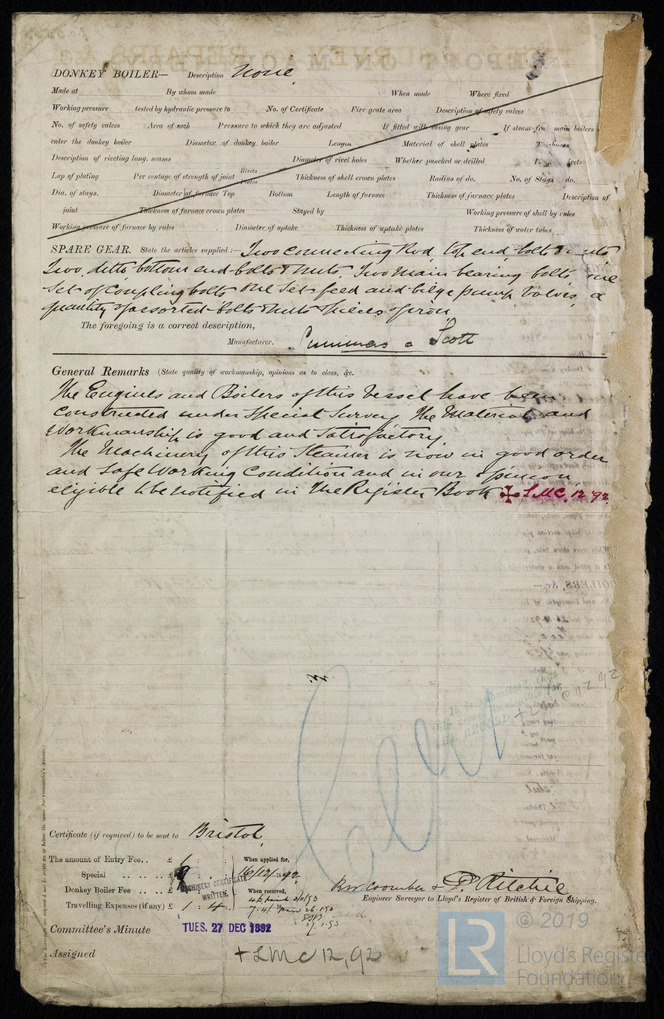 DONKEY BOILER— Description None
Made at By whom made When made Where fixed
Working pressure tested by hydraulic pressure to No. of Certificate Fire grate area Description of safety valves
No. of safety valves Area of each Pressure to which they are adjusted If fitted with easing gear If steam from main boilers
enter the donkey boiler Diameter of donkey boiler Length Material of shell plates Thickness
Description of riveting long. seams Diameter of rivet holes Whether punched or drilled
Lap of plating Per centage of strength of joint Rivets Thickness of shell crown plates Radius of do. No. of Stays do.
Dia. of stays. Diameter of furnace Top Bottom Length of furnace Thickness of furnace plates Description of
joint Thickness of furnace crown plates Stayed by Working pressure of shell by rules
Working pressure of furnace by rules Diameter of uptake Thickness of uptake plates Thickness of water tubes
SPARE GEAR. State the articles supplied:— Two connecting Rod top end bolts & nuts
Two ditto bottom end bolts & nuts Two Main bearing bolts one
set of coupling bolts one set feed and bilge pump valves, a
quantity of assorted bolts & nuts & pieces of iron
The foregoing is a correct description,
Manufacturer. Summers & Scott
General Remarks (State quality of workmanship, opinions as to class, &c.
The Engines and Boilers of this Vessel have been
constructed under Special Survey, the Material and
Workmanship is good and satisfactory.
The Machinery of this Steamer is now in good order
and safe Working Condition and in our opinion
eligible to be notified in the Register Book ✠ LMC. 12.92
Certificate (if required) to be sent to Bristol
The amount of Entry Fee.. £ When applied for,
Special .. £ 16/12/92
Donkey Boiler Fee .. £ When received,
Travelling Expenses (if any) £ 1 . 4
MACHINERY CERTIFICATE
WRITTEN.
RW Coomber & P. Ritchie
Engineer Surveyor to Lloyd's Register of British & Foreign Shipping.
Committee's Minute TUES. 27 DEC 1892
Assigned + LMC 12,92
LR
© 2019
Lloyd's Register
Foundation